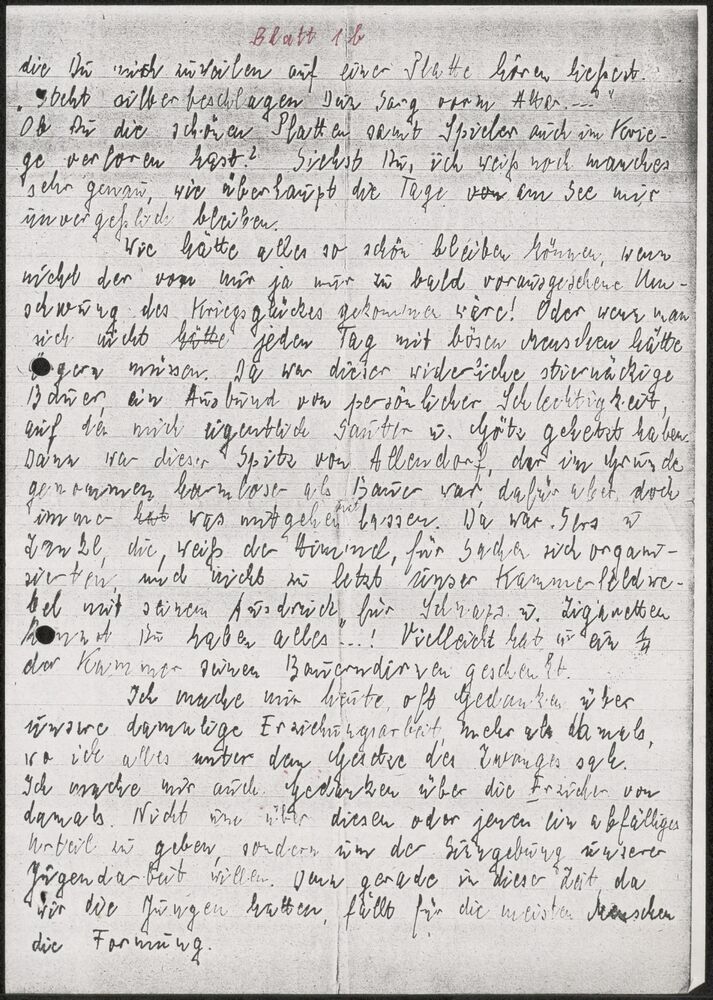 Blatt 1b
die Du mich zuweilen auf einer Platte hören ließest.
" silberbeschlagen Dein Sarg vorm Altar.---"
Ob Du die schönen Platten samt Spieler auch im Krie-
ge verloren hast? Siehst Du, ich weiß noch manches
sehr genau, wie überhaupt die Tage von am See mir
unvergeßlich bleiben.
Wie hätte alles so schön bleiben können, wenn
nicht der von mir ja nur zu bald vorausgesehene Um-
schwung des Kriegsglückes gekommen wäre! Oder wenn man
sich nicht hätte jeden Tag mit bösen Menschen hätte
ärgern müssen. Da war dieser widerliche stiernäckige
Bauer, ein Ausbund von persönlicher Schlechtigkeit,
auf den mich eigentlich Sauter u. Götz gehetzt haben.
Dann war dieser Spitz von Allendorf, der im Grunde
genommen harmloser als Bauer war, dafür aber doch
immer hat was mitgehen hat lassen. Da war u
die, weiß der Himmel, für Sachen sich organi-
sierten, und nicht zu letzt unser Kammerfeldwe-
bel mit seinem Ausdruck "für Schnaps u. Zigaretten
kannst Du haben alles...! Vielleicht hat er ein ¼
der Kammer seinen Bauerndirnen geschenkt.
Ich mache mir heute oft Gedanken über
unsere damalige Erziehungsarbeit, mehr als damals,
wo ich alles unter dem Gesetze des Zwanges sah.
Ich mache mir auch Gedanken über die Erzieher von
damals. Nicht um über diesen oder jenen ein abfälliges
Urteil zu geben, sondern um der Sinngebung unserer
Jugendarbeit willen. Denn gerade in dieser Zeit, da
wir die Jungen hatten, fällt für die meisten Menschen
die Formung.